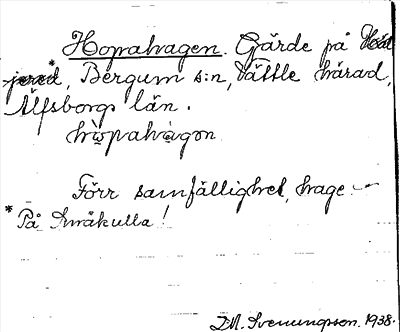 Hopahagen. Gärde på
*, Bergum s:n, Vättle härad,
Älfsborgs län.
hò̤pahà̤gon
Förr samfällighet, hage. –
* På Småkulla!
D.M. Svenungsson. 1938.